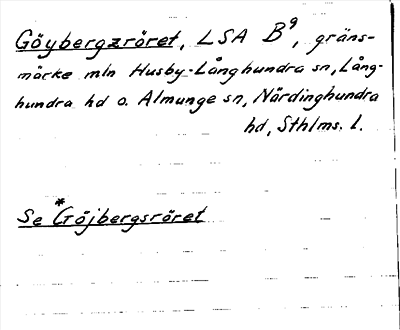 Göybergzröret, LSA B⁹, gräns-
märke mln Husby-Långhundra sn, Lång-
hundra hd o. Almunge sn, Närdinghundra
hd, Sthlms. l.
Se *Göjbergsröret